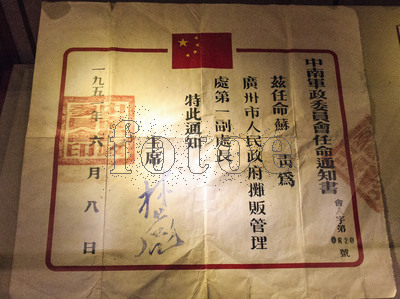 中南軍政委員會任命通知書
會 字第0820號
茲任命蘇 為
廣州市人民政府攤販管理
處第一副處長
特此通知
主席
一九五 年六月八日
fotoe